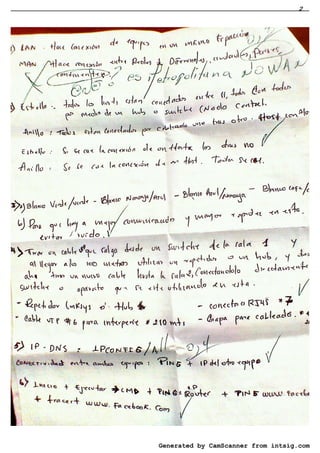 2
1) LAN . Hace conexión de equipos en un mismo Espacio
MAN / Hace conexión entre Redes Diferentes, ciudades, Paises
continentes. ? es Metropolitana No WAN
2) Estrella: todos los hosts estan conectados entre si, todos con todos
por medio de un hub o suitche (Nodo Central.
Anillo: Todos estan conectados por cableado uno tras otro. Host con
Estrella: Si se cae la conexión de un Host los dos no
Anillo: Se le cae la conexión de un Host. Todos se cae.
3) a) Blanco Verde/verde - Blanco Naranja/Azul - Blanco Azul/naranja - Blanco
b) Para que haya mayor comunicación y mayor rapidez en esta.
Evitar ruido.
4) Tirar un cable que salga desde un suitche de la sala 1 y
al llegar a los 100 metros utilizar un repetidor o un hub, y
tirar un nuevo cable hasta la sala 2, Conectandolo directamente
suitche o aparato que se este utilizando en esta.
- Repetidor Linksys o Hub 1
- conector RJ45 # 7
- Cable UTP #6 para interperie # 210 mts
- Grapa para cableado. #
5) IP - DNS : IPCONFIG/All 0,4
conectividad entre ambos equipos: PING + IP del otro equipo
6) Inicio + Ejecutar → CMD + PING + IP Router + PING www. Facebo
+ tracert www. Facebook. Com
Generated by CamScanner from intsig.com